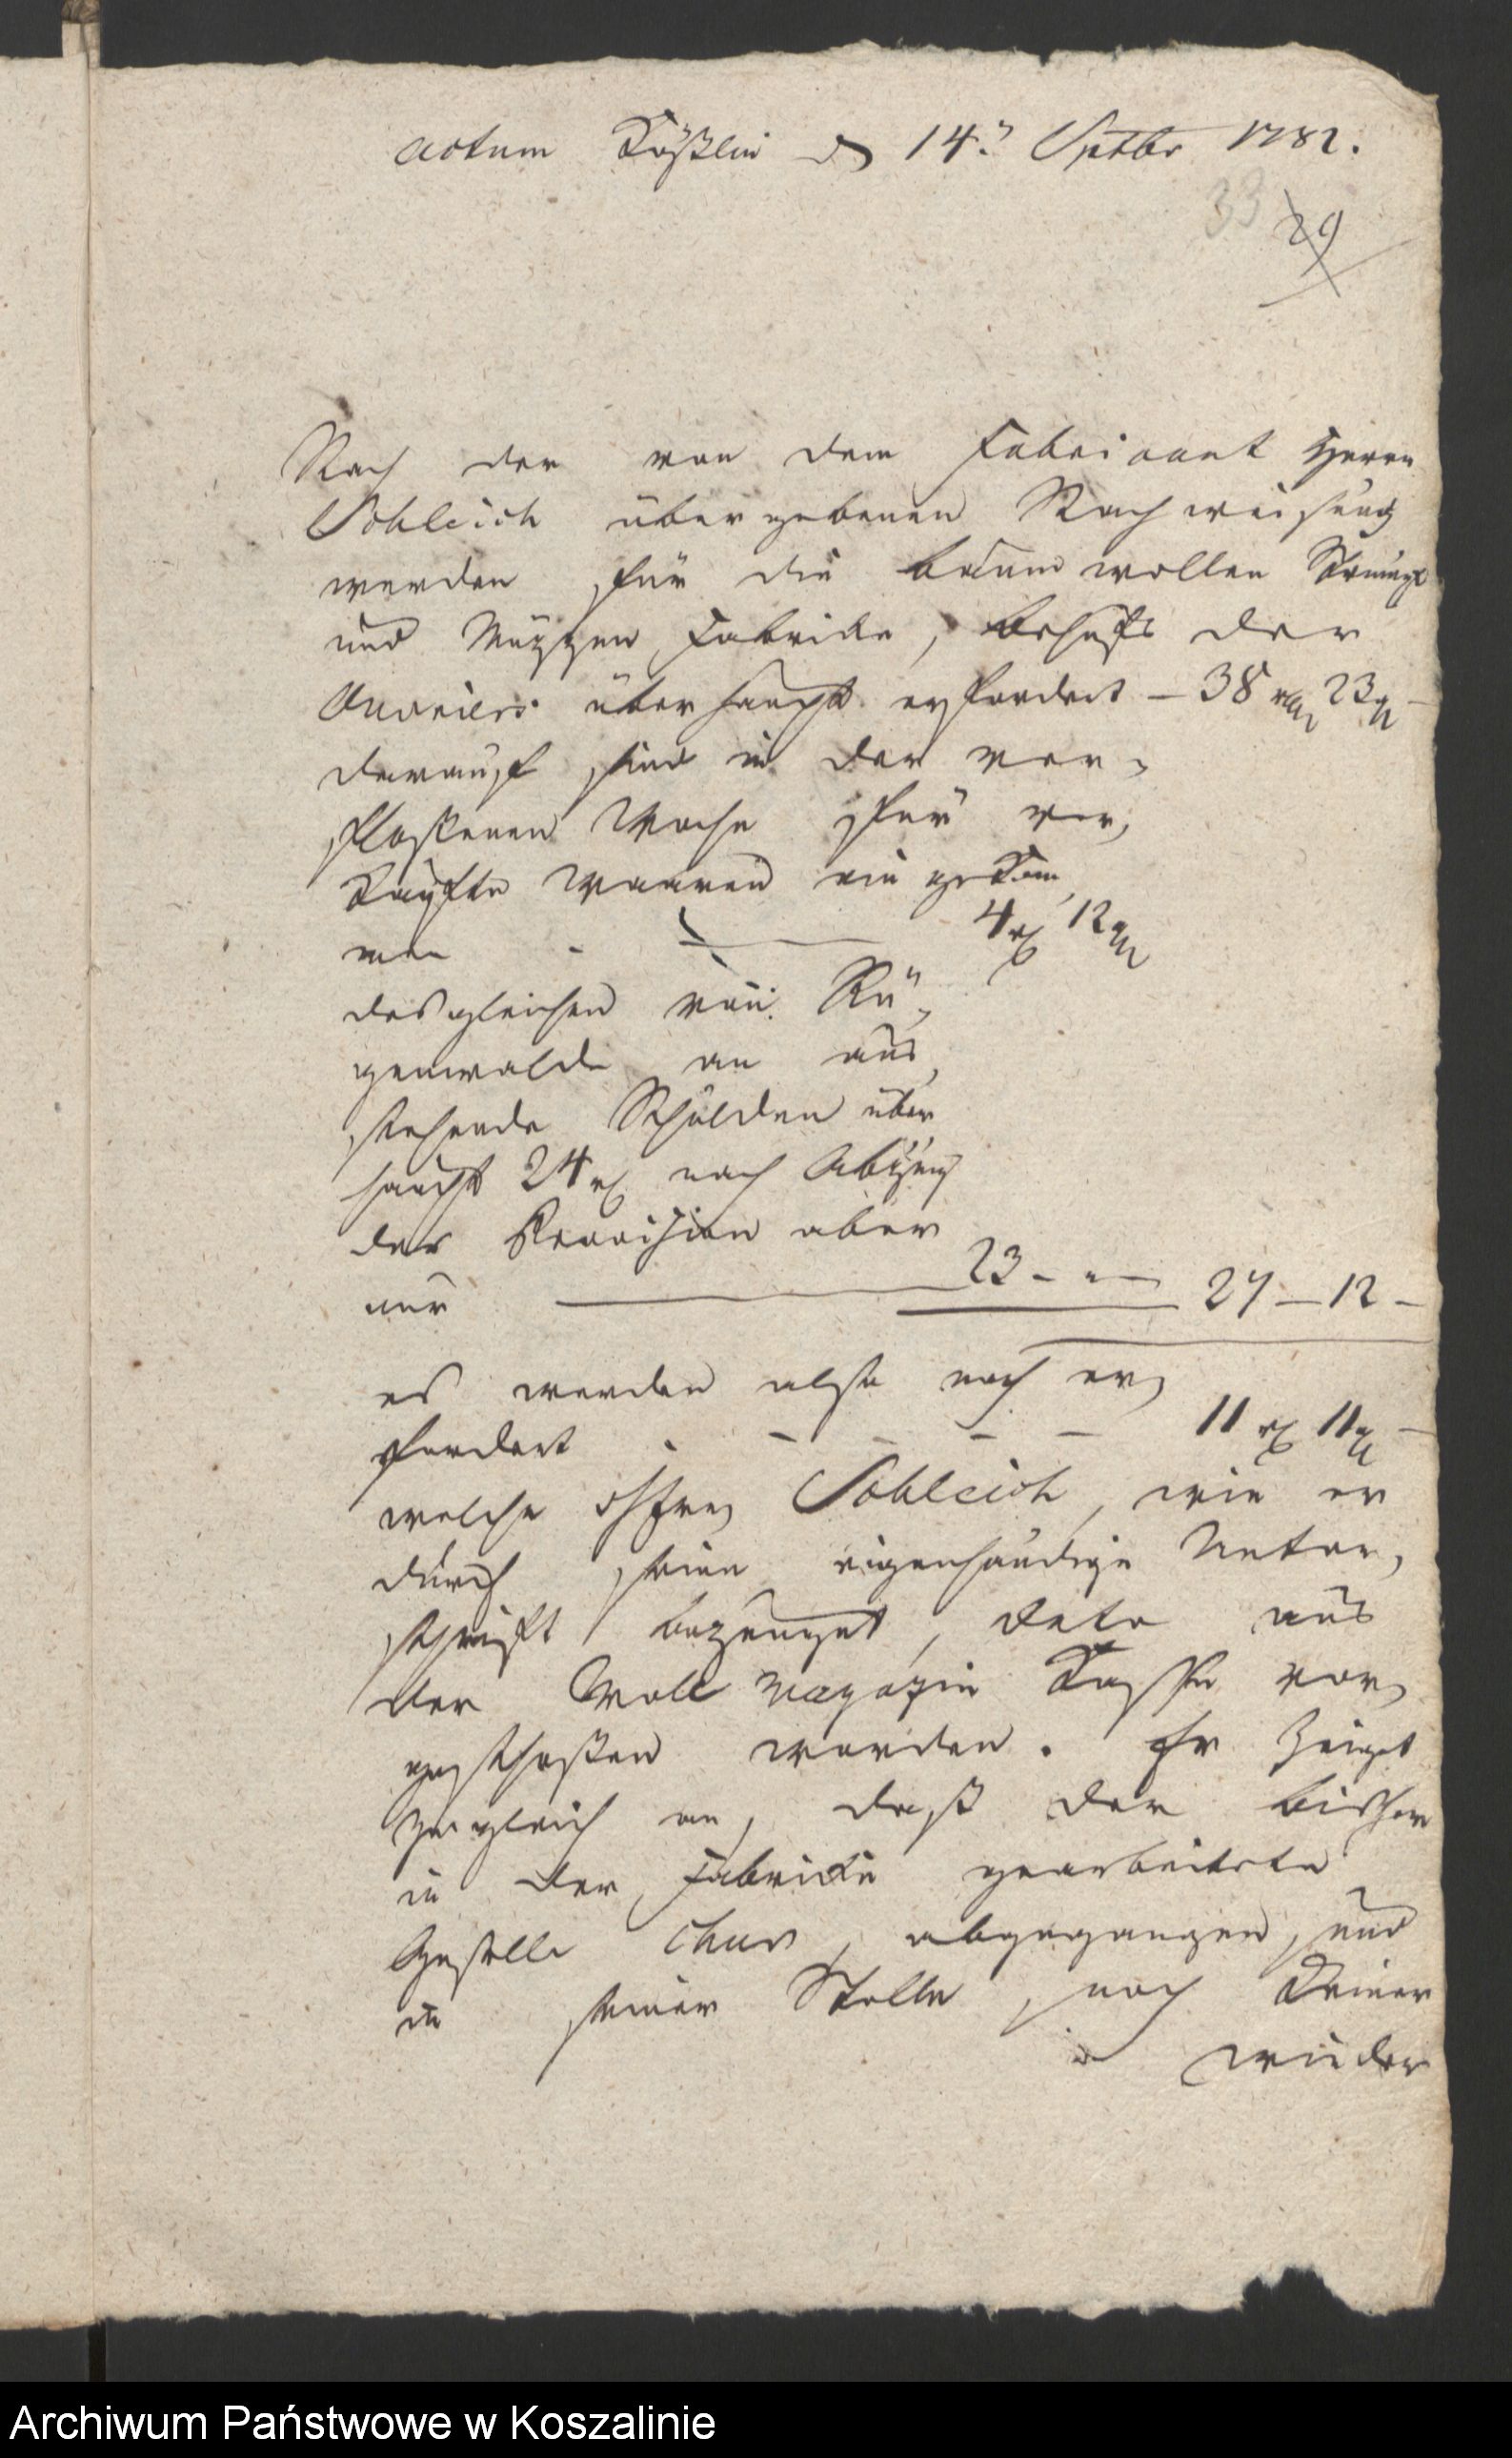 actum Cößlin d 14.t Septbr 1782.
33 29
Nach der von dem Fabricant Herrn
Schleich übergebenen Nachweisung
werden für die baumwollen Strumpf
und Müzzen Fabricke, behufs der
Ouvriers überhaupt erfordert – 38 rtl 23 g –
darauf sind in der ver-
floßenen Woche für ver-
kaufte Waaren ein gekom-
men – 4 rt 12 g
desgleichen von Rü-
genwalde an aus-
stehende Schulden über
haupt 24 rt nach Abzug
der Provision aber
nur 23 – " – 27 – 12 –
es werden also noch er-
fordert – – – – 11 rt 11 g –
welche Schleich, wie er
durch seine eigenhändige Unter-
schrift bezeuget, dato aus
der Woll Magazin Casse vor-
geschoßen worden. Er zeiget
zugleich an, daß der bisher
in der Fabricke gearbeitete
Geselle abgegangen, und
in seiner Stelle, noch keiner
wieder
Archiwum Państwowe w Koszalinie